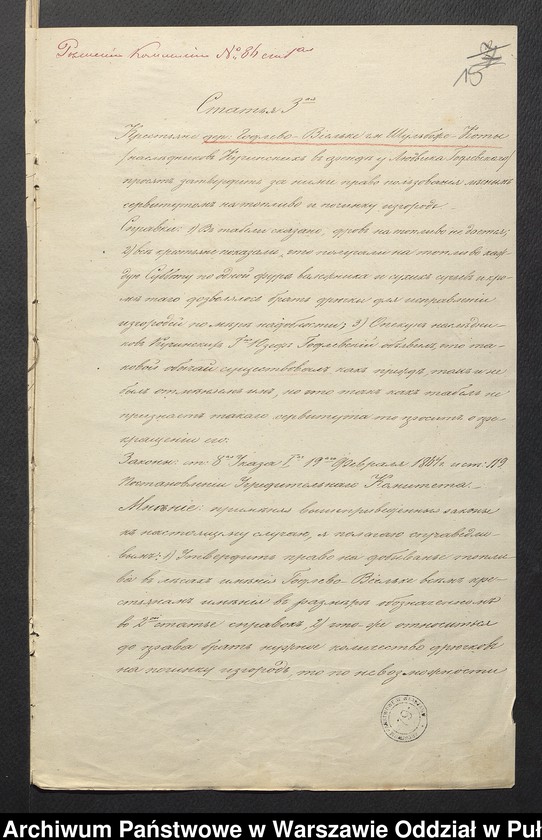 Рѣшеніи Коммиссіи № 84 ст. 1ая
15
Статья 3ая
Крестьяне дер. Годлево-Вѣльке им. Шульборже-Коты
/наслѣдниковъ Кучинскихъ въ арендѣ у Людвика Горževскаго/
просятъ затвердить за ними право пользованія лѣснымъ
сервитутомъ на топливо и починку изгородь.
Справки: 1) Въ табели сказано, дровъ на топливо не дается;
2) всѣ крестьяне показали, что получали на топливо каж-
дую субботу по одной фурѣ валежника и сухихъ сучьевъ и кро-
мѣ того дозволялось брать дрючки для исправленія
изгородей по мѣрѣ надобности; 3) Опекунъ наслѣдни-
ковъ Кучинскихъ Г-нъ Юзефъ Годлевскій объявилъ, что та-
ковой обычай существовалъ какъ прежде, такъ и не
былъ отмѣненъ имъ, но что такъ какъ табель не
признаетъ такаго сервитута то проситъ о пре-
кращеніи его.
Законы: ст. 8ая Указа Iго 19го Февраля 1864 г. и ст. 119
Постановленій Учредительнаго Комитета
Мнѣніе: примѣняя вышеприведенные законы
къ настоящему случаю, я полагаю справедли-
вымъ: 1) Утвердить право на добыванье топли-
ва въ лѣсахъ имѣнія Годлево-Вѣльке всѣмъ кре-
стьянамъ имѣнія въ размѣрѣ обозначенномъ
во 2ой статьѣ справокъ, 2) что-же относится
до права брать нужное количество дрючковъ
на починку изгородь, то по невозможности
Archiwum Państwowe w Warszawie Oddział w Puł